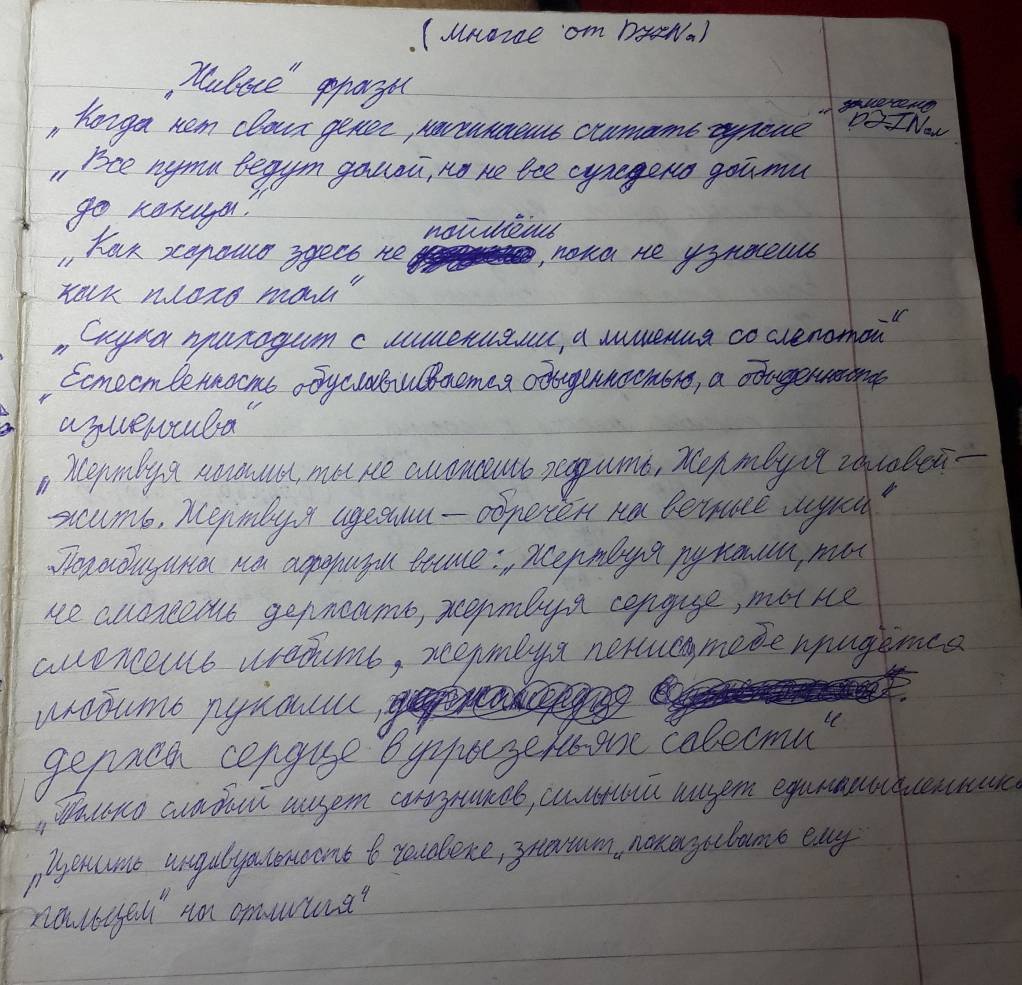 (Многое от DJINa)
„Живые" фразы
„Когда нет своих денег, начинаешь считать чужие" замечено
DJINом
„Все пути ведут домой, но не все суждено дойти
до конца."
поймёшь
„Как хорошо здесь не , пока не узнаешь
как плохо там"
„Скука приходит с лишениями, а лишения со слепотой"
„Естественность обуславливается обыденностью, а обыденность
изменчива"
„Жертвуя ногами, ты не сможешь ходить. Жертвуя головой —
жить. Жертвуя идеями — обречён на вечные муки"
Похабщина на афоризм выше: „Жертвуя руками, ты
не сможешь держать, жертвуя сердце, ты не
сможешь любить, жертвуя пенис, тебе придётся
любить руками,
держа сердце в угрызеньях совести"
„Только слабый ищет союзников, сильный ищет единомысленника
„Ценить индивуальность в человеке, значит „показывать ему
пальцем" на отличия"